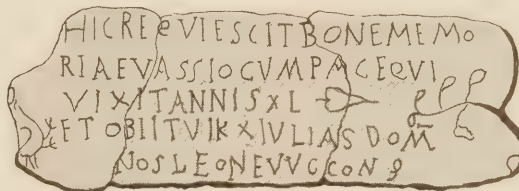 HICREQVIESCITBONEMEMO
RIAEVASSIOCVMPACEQVI
VIXITANNISXL
ETOBIITVIKXIVLIASDOM̅
NOSLEONEVVCCONS